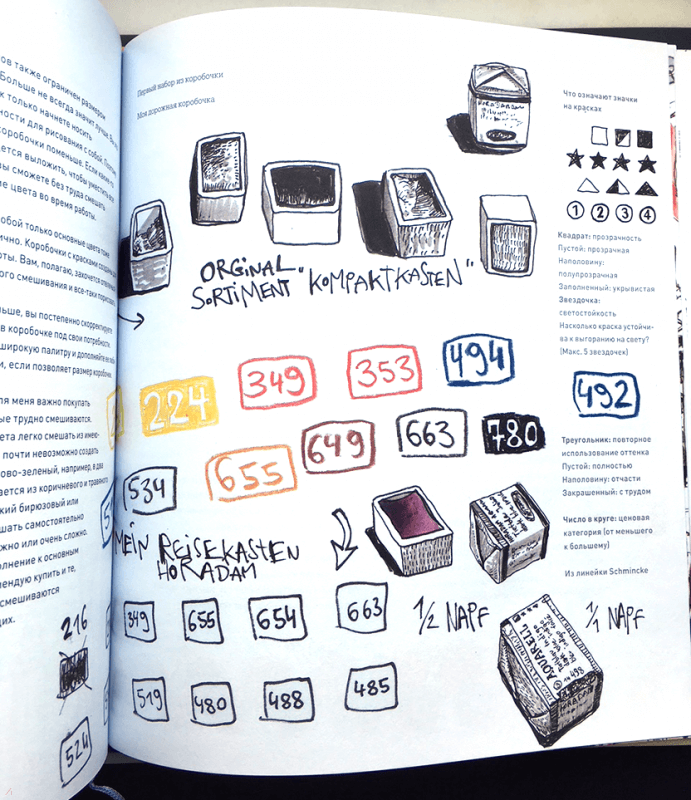 ов также ограничен размером
Больше не всегда значит лучше.
только начнете носить
ности для рисования с собой.
коробочки поменьше. Если
ется выложить, чтобы уместить
вы сможете без труда смешать
ие цвета во время работы.
обой только основные цвета тоже
ично. Коробочки с красками
оты. Вам, полагаю, захочется
ого смешивания и все-таки
ьше, вы постепенно скорректируете
в коробочке под свои потребности.
широкую палитру и дополняйте
и, если позволяет размер коробки.
ля меня важно покупать
ые трудно смешиваются.
ета легко смешать из имею-
почти невозможно создать
ово-зеленый, например, в два
ается из коричневого и травяного
ский бирюзовый или
шать самостоятельно
жно или очень сложно.
олнение к основным
мендую купить и те,
смешиваются
щих.
216
524
Первый набор из коробочки
Моя дорожная коробочка
ORGINAL
SORTIMENT "KOMPAKTKASTEN"
224 349 353 494 492
534 655 649 663 780
MEIN REISEKASTEN
HORADAM
349 655 654 663 1/2 NAPF 1/1 NAPF
519 480 488 485
AQUARELL
Что означают значки
на красках
1 2 3 4
Квадрат: прозрачность
Пустой: прозрачная
Наполовину:
полупрозрачная
Заполненный: укрывистая
Звездочка:
светостойкость
Насколько краска устойчи-
ва к выгоранию на свету?
(Макс. 5 звездочек)
Треугольник: повторное
использование оттенка
Пустой: полностью
Наполовину: отчасти
Закрашенный: с трудом
Число в круге: ценовая
категория (от меньшего
к большому)
Из линейки Schmincke